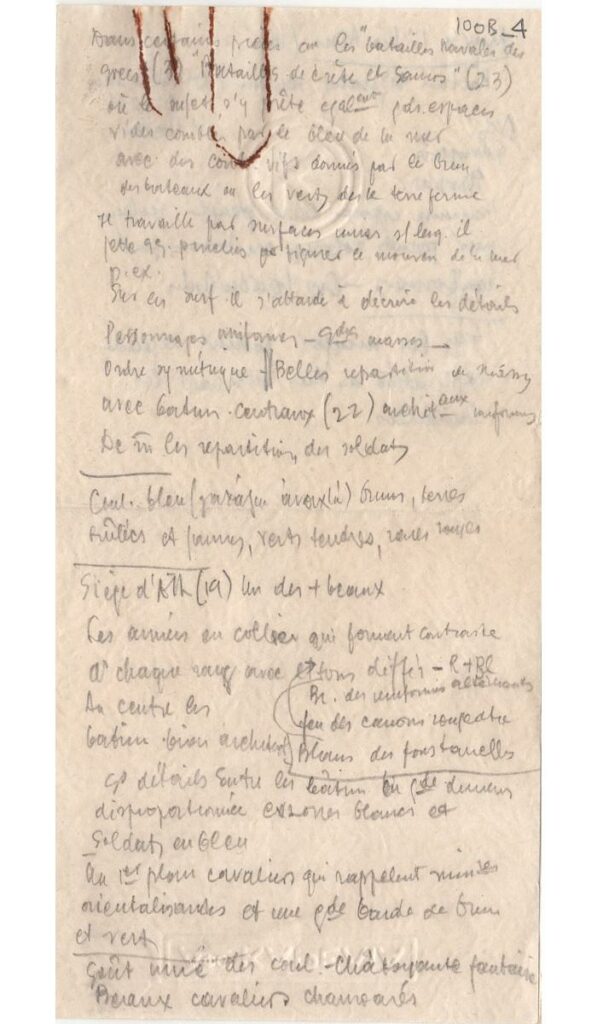 100B_4
Dans certains pièces ou les "batailles navales des
grecs ( ) "Batailles de Crète et Samos" (23)
où le sujet s'y prête egalent gds. espaces
vides comblés par le bleu de la mer
avec des coul. vifs donnés par le brun
des bateaux ou les verts de la terre ferme
Il travaille par surfaces unies s/ il
jette qq. le mouvem de la mer
p. ex.
Sur les surf. il s'attarde à décrire les détails
Personnages uniformes - gdes masses -
Ordre symétrique - Belles repartition en
avec batim. centraux (22) uniformes
De m les repartition des soldats
Coul. bleu ( ) bruns, terres
brûlées et jaunes, verts tendres, rouges
Siège d'Ath (19) Un des + beaux
Les armées en collier qui forment contraste
A chaque rang avec tons diffés - R + Bl
Bl. des uniformes alternants
Au centre les
feu des canons rouge
batim. bien
Blancs des fonstanelles
gs détails Entre les bâtim. gde
disproportionnée blanches et
Soldats en bleu
Au 1er plan cavaliers qui rappelent
orientalisandes et une gde bande de brun
et vert
Goût inné des coul - Chatoyante fantaisie
Beaux cavaliers chamarés